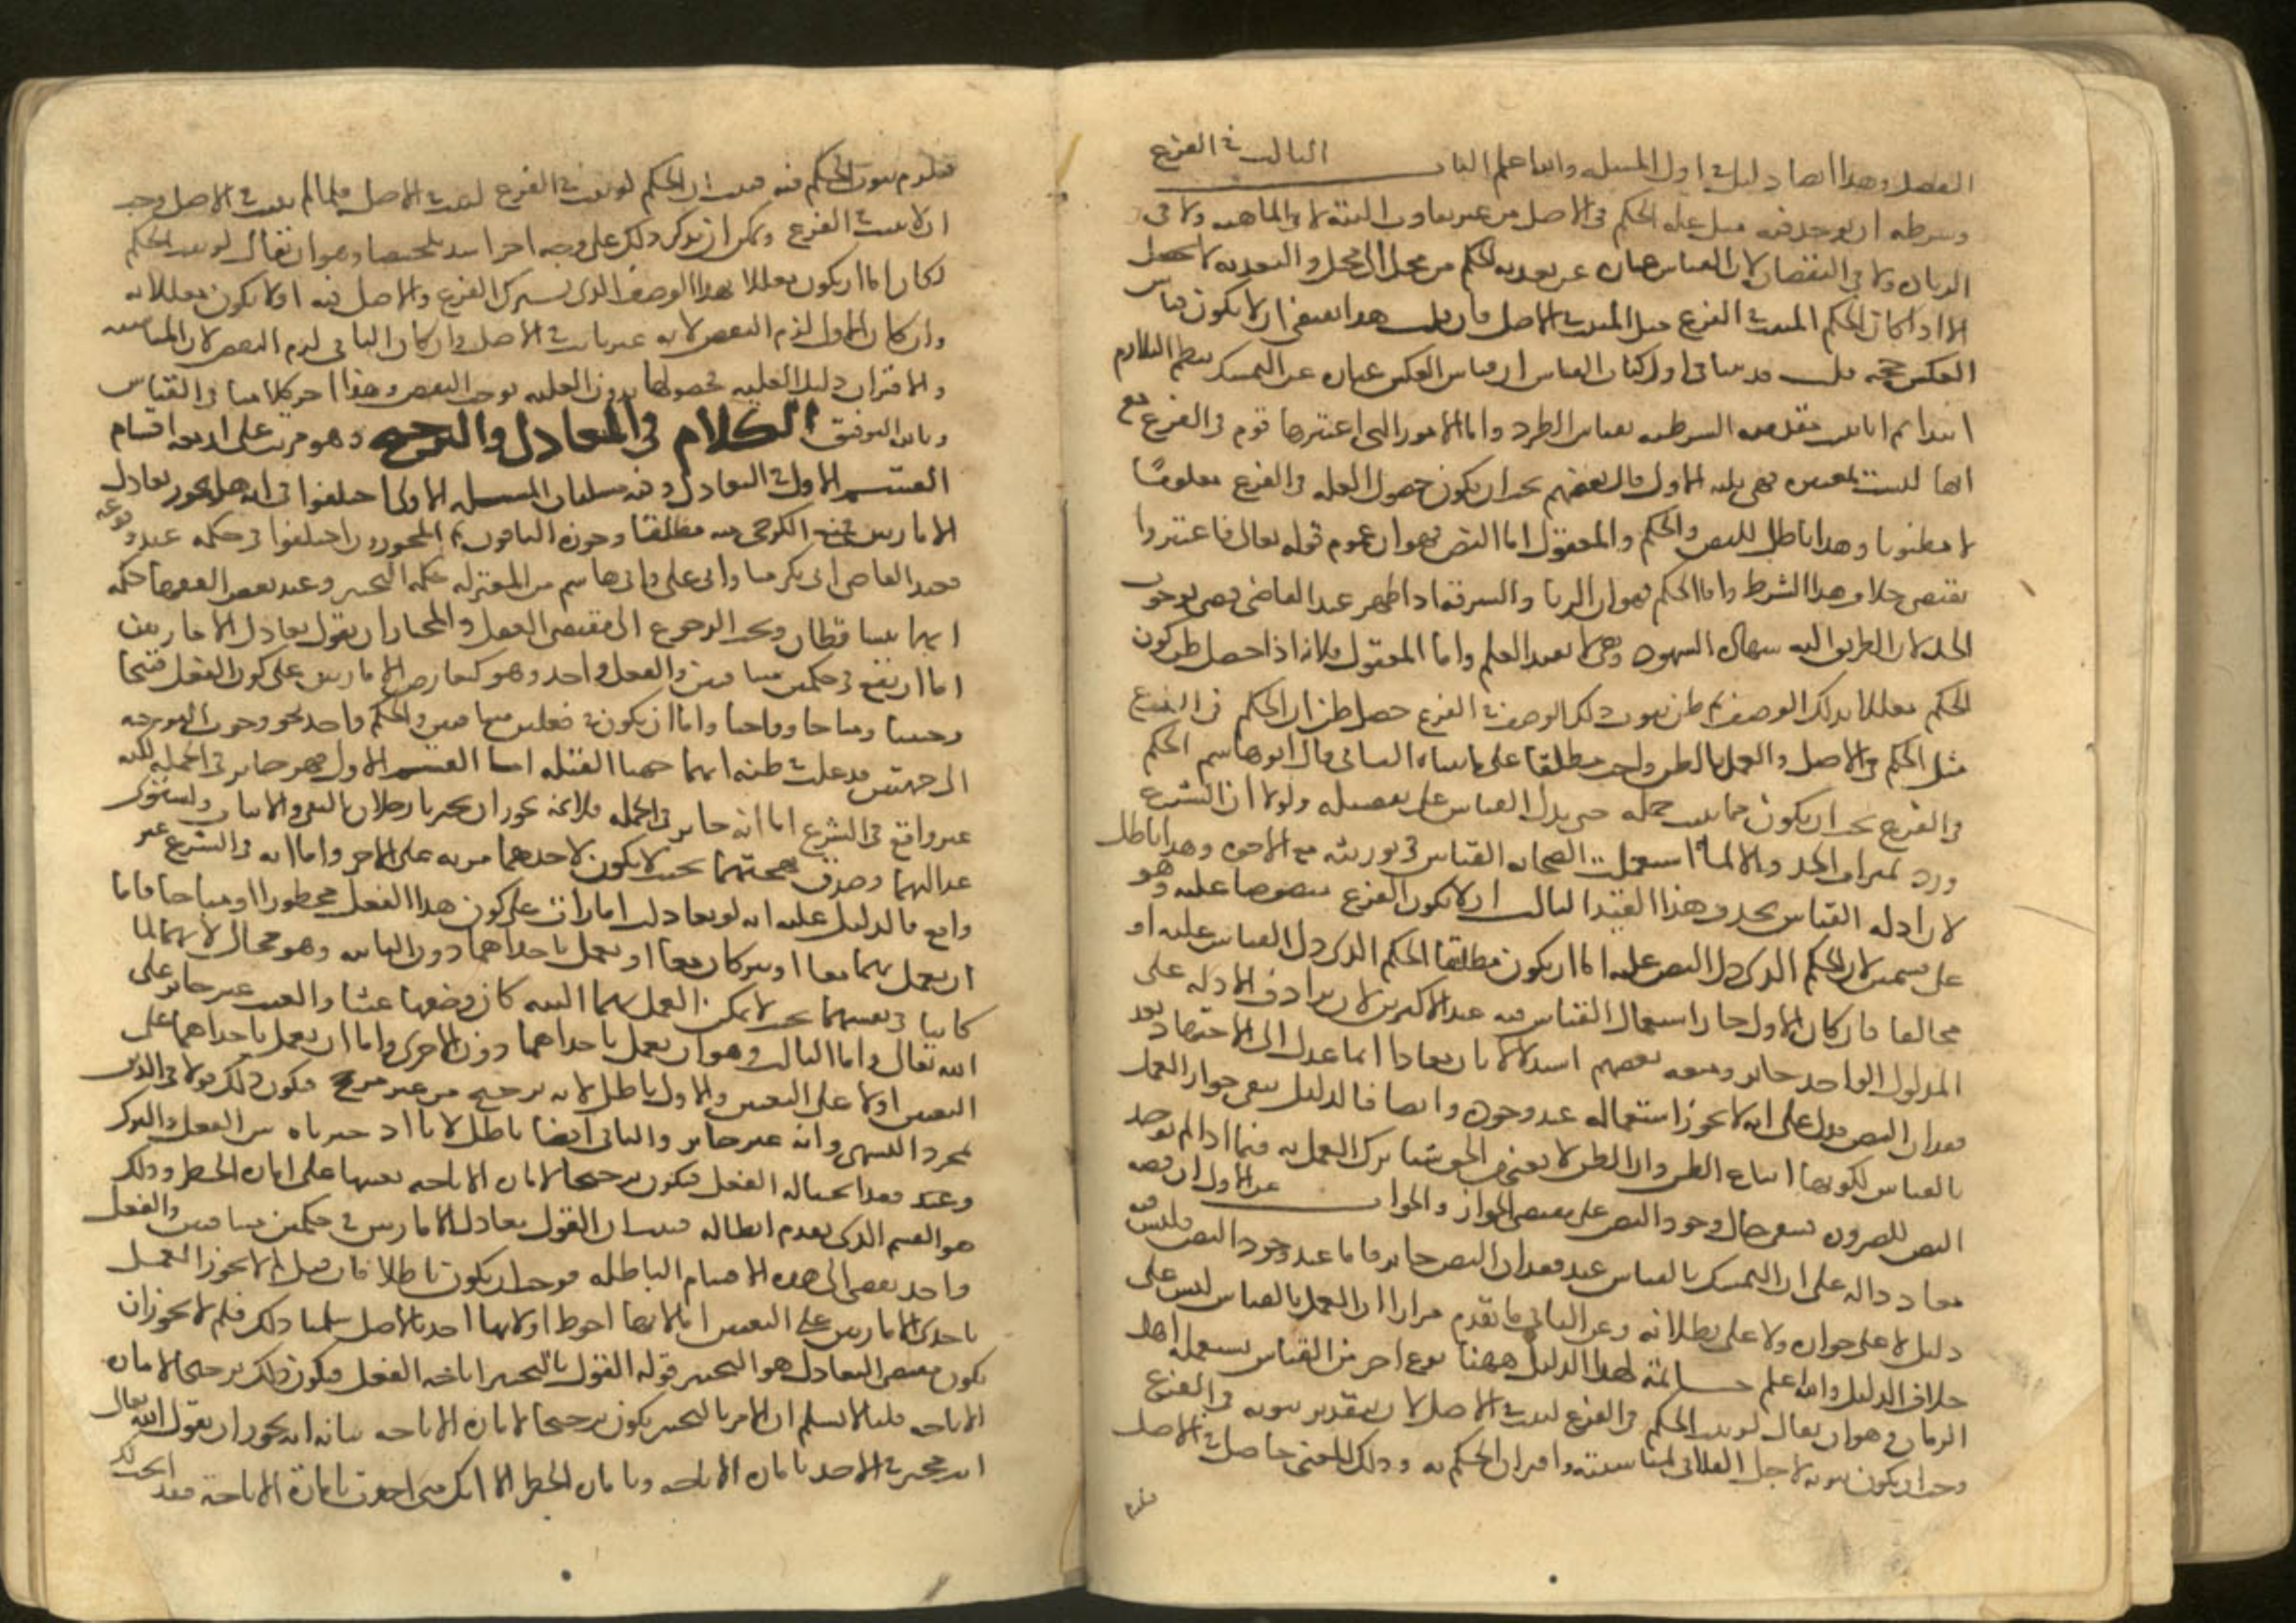 الفصل وهذا ايضا دليل في اول المسله والله اعلم الباب الثالث في الفرع
وشرطه ان يوجد فيه مثل عله الحكم في الاصل من غير تفاوت البتة لا في الماهيه ولا في
الزياده ولا في النقصان لان القياس عباره عن تعديه الحكم من محل الى محل والتعديه لا تحصل
الا اذا كان الحكم المثبت في الفرع مثل المثبت في الاصل فان قلت هذا يقتضي ان لا يكون قياس
العكس حجه قلت قد بينا في اول كتاب القياس ان قياس العكس عباره عن التمسك بنظم التلازم
ابتدا ثم اثبات مقدمته الشرطيه بقياس الطرد واما الامور التي اعتبرها قوم في الفرع مع
انها ليست بمعتبره فهي ثلثه الاول قال بعضهم يجب ان يكون حصول العله في الفرع معلومًا
لا مظنونا وهذا باطل للنص والحكم والمعقول اما النص فهو ان عموم قوله تعالى فاعتبروا
يقتضي حذف هذا الشرط واما الحكم فهو ان الزنا والسرقه اذا ظهر عند القاضي قضى بوجوب
الحد لان الطريق اليه شهاده الشهود وهي لا تفيد العلم واما المعقول فلانه اذا حصل ظن كون
الحكم معللا بذلك الوصف ثم ظن ثبوت ذلك الوصف في الفرع حصل ظن ان الحكم في الفرع
مثل الحكم في الاصل والعمل بالظن واجب مطلقا على ما بيناه الثاني قال ابو هاشم الحكم
في الفرع يجب ان يكون مما يثبت جمله حتى يدل القياس على تفصيله ولولا ان الشرع
ورد بميراث الجد والا لما استعملت الصحابه القياس في توريثه مع الاخوه وهذا باطل
لان ادله القياس تحذف هذا القيد الثالث ان لا يكون الفرع منصوصا عليه وهو
على قسمين لان الحكم الذي دل النص عليه اما ان يكون مطابقا الحكم الذي دل القياس عليه او
مخالفا فان كان الاول جاز استعمال القياس فيه عند الاكثرين لان ترادف الادله على
المدلول الواحد جائز ومنعه بعضهم استدلالا بان معاذا انما عدل الى الاجتهاد بعد
فقدان النص فدل على انه لا يجوز استعماله عند وجوده وايضا فالدليل ينفي جواز العمل
بالقياس لكونها اتباع الظن وان الظن لا يغني من الحق شيا ترك العمل به فيما اذا لم يوجد
النص للضروره فيبقى حال وجود النص على مقتضى الجواز والجواب عن الاول ان قصه
معاذ داله على ان التمسك بالقياس عند فقدان النص جائز فاما عند وجود النص فليس فيه
دليل لا على جوازه ولا على بطلانه وعن الثاني ما تقدم مرارا ان العمل بالقياس ليس على
خلاف الدليل والله اعلم خاتمه لهذا الدليل ههنا نوع اخر من القياس يستعمله اهل
الزمان وهو ان يقال لو ثبت الحكم في الفرع لثبت في الاصل لان بتقدير ثبوته في الفرع
وجب ان يكون ثبوته لاجل الفلاني لمناسبته واقتران الحكم به وذلك المعنى حاصل في الاصل
فيلزم
فيلزم ثبوت الحكم فيه فثبت ان الحكم لو ثبت في الفرع لثبت في الاصل فلما لم يثبت في الاصل وجب
ان لا يثبت في الفرع ويمكن ان يذكر ذلك على وجه اخر اشد تلخيصا وهو ان يقال لو ثبت الحكم
لكان اما ان يكون معللا بهذا الوصف الذي يشترك الفرع والاصل فيه او لا يكون معللا به
وان كان الاول لزم النقص لانه غير ثابت في الاصل وان كان الثاني لزم النقص لان المناسبه
والاقتران دليل العليه فحصولها بدون العليه يوجب النقص وهذا اخر كلامنا في القياس
وبالله التوفيق الكلام في التعادل والترجيح وهو مرتب على اربعه اقسام
القسم الاول في التعادل وفيه مسلتان المسله الاولى اختلفوا في انه هل يجوز تعادل
الامارتين فمنع الكرخي منه مطلقا وجوزه الباقون ثم المجوزون اختلفوا في حكمه عند وقوعه
فعند القاضي ابي بكر منا وابي علي وابي هاشم من المعتزله حكمه التخيير وعند بعض الفقها حكمه
انهما يتساقطان ويجب الرجوع الى مقتضى العقل والمختار ان نقول تعادل الامارتين
اما ان يقع في حكمين متنافيين والفعل واحد وهو كتعارض الامارتين على كون الفعل قبيحا
وحسنا ومباحا وواجبا واما ان يكون في فعلين متنافيين والحكم واحد نحو وجوب التوجه
الى جهتين قد غلب في ظنه انهما جهتا القبله اما القسم الاول فهو جائز في الجمله لكنه
غير واقع في الشرع اما انه جائز في الجمله فلانه يجوز ان يخبرنا رجلان بالنفي والاثبات وتستوي
عدالتهما وصدق لهجتهما بحيث لا يكون لاحدهما مزيه على الاخر واما انه في الشرع غير
واقع فالدليل عليه انه لو تعادلت امارتان على كون هذا الفعل محظورا او مباحا فاما
ان يعمل بهما معا او يتركان معا او يعمل باحداهما دون الثانيه وهو محال لانهما لما
كانتا في نفسيهما بحيث لا يمكن العمل بهما البته كان وضعهما عبثا والعبث غير جائز على
الله تعالى واما الثالث وهو ان يعمل باحداهما دون الاخرى فاما ان يعمل باحداهما على
التعيين او لا على التعيين والاول باطل لانه ترجيح من غير مرجح فيكون ذلك قولا في الدين
بمجرد التشهي وانه غير جائز والثاني ايضا باطل لانا اذا خيرناه بين الفعل والترك
وعند فقد ابحنا له الفعل فيكون ترجيحا لاماره الاباحه بعينها على اماره الحظر وذلك
هو القسم الذي تقدم ابطاله فثبت ان القول بتعادل الامارتين في حكمين متنافيين والفعل
واحد يفضي الى هذه الاقسام الباطله فوجب ان يكون باطلا فان قيل لم لا يجوز العمل
باحدى الامارتين على التعيين اما لانها احوط او لانها اخذ بالاصل سلمنا ذلك فلم لا يجوز ان
يكون مقتضى التعادل هو التخيير قوله القول بالتخيير اباحه الفعل فيكون ذلك ترجيحا لاماره
الاباحه قلنا لا نسلم ان الامر بالتخيير يكون ترجيحا لاماره الاباحه بيانه انه يجوز ان يقول الله تعالى
انت مخير في الاخذ باماره الاباحه وباماره الحظر الا انك متى اخذت باماره الاباحة فقد ابحت لك